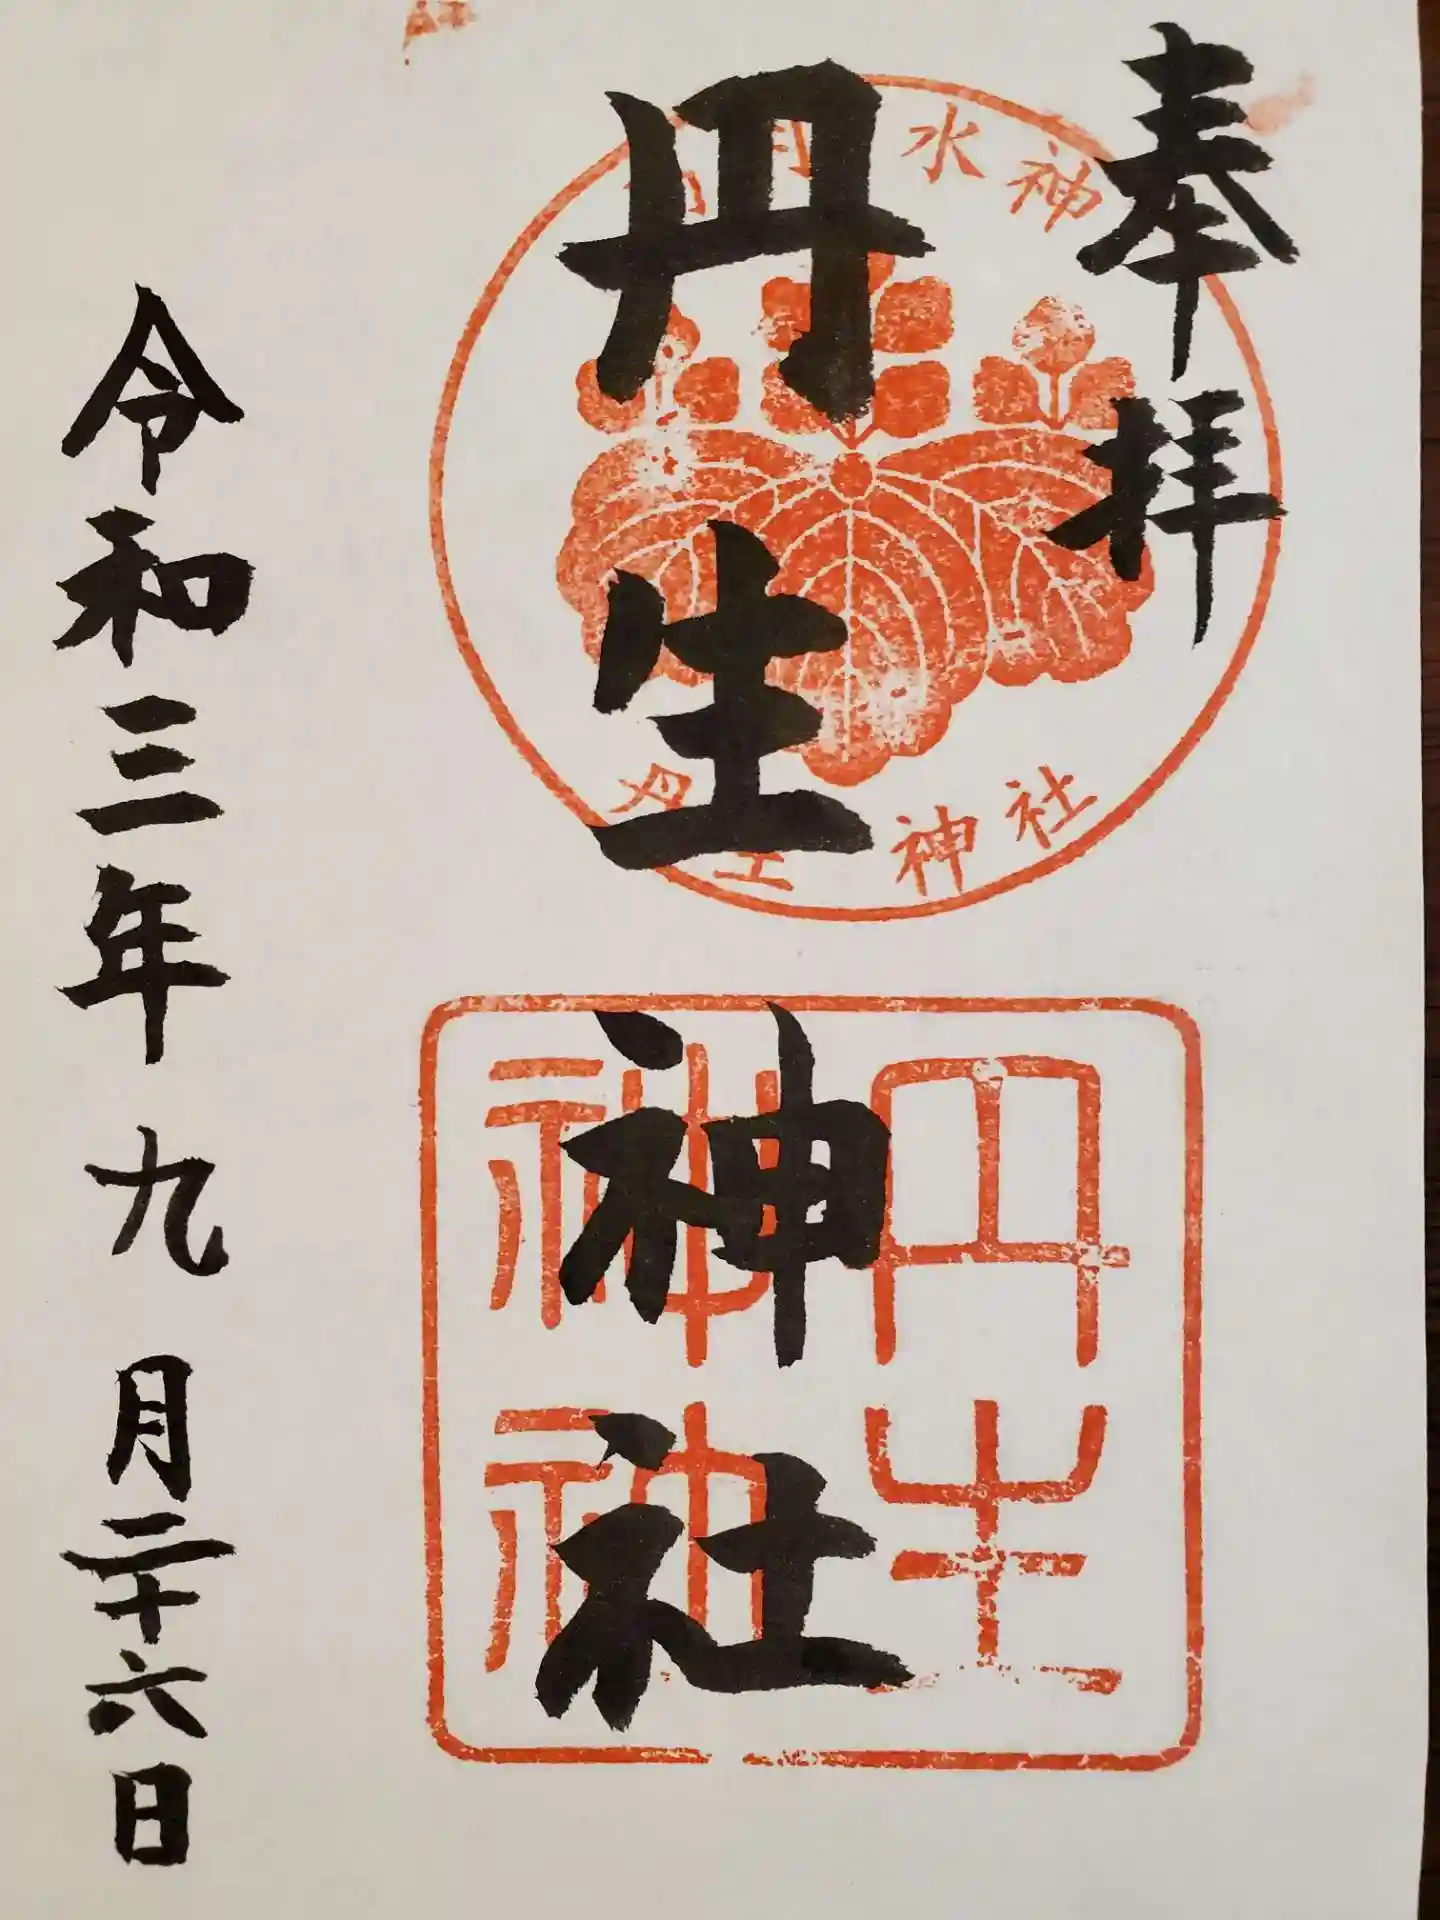 奉拝
丹生神社
水神
神社
丹生
神神
令和三年九月二十六日